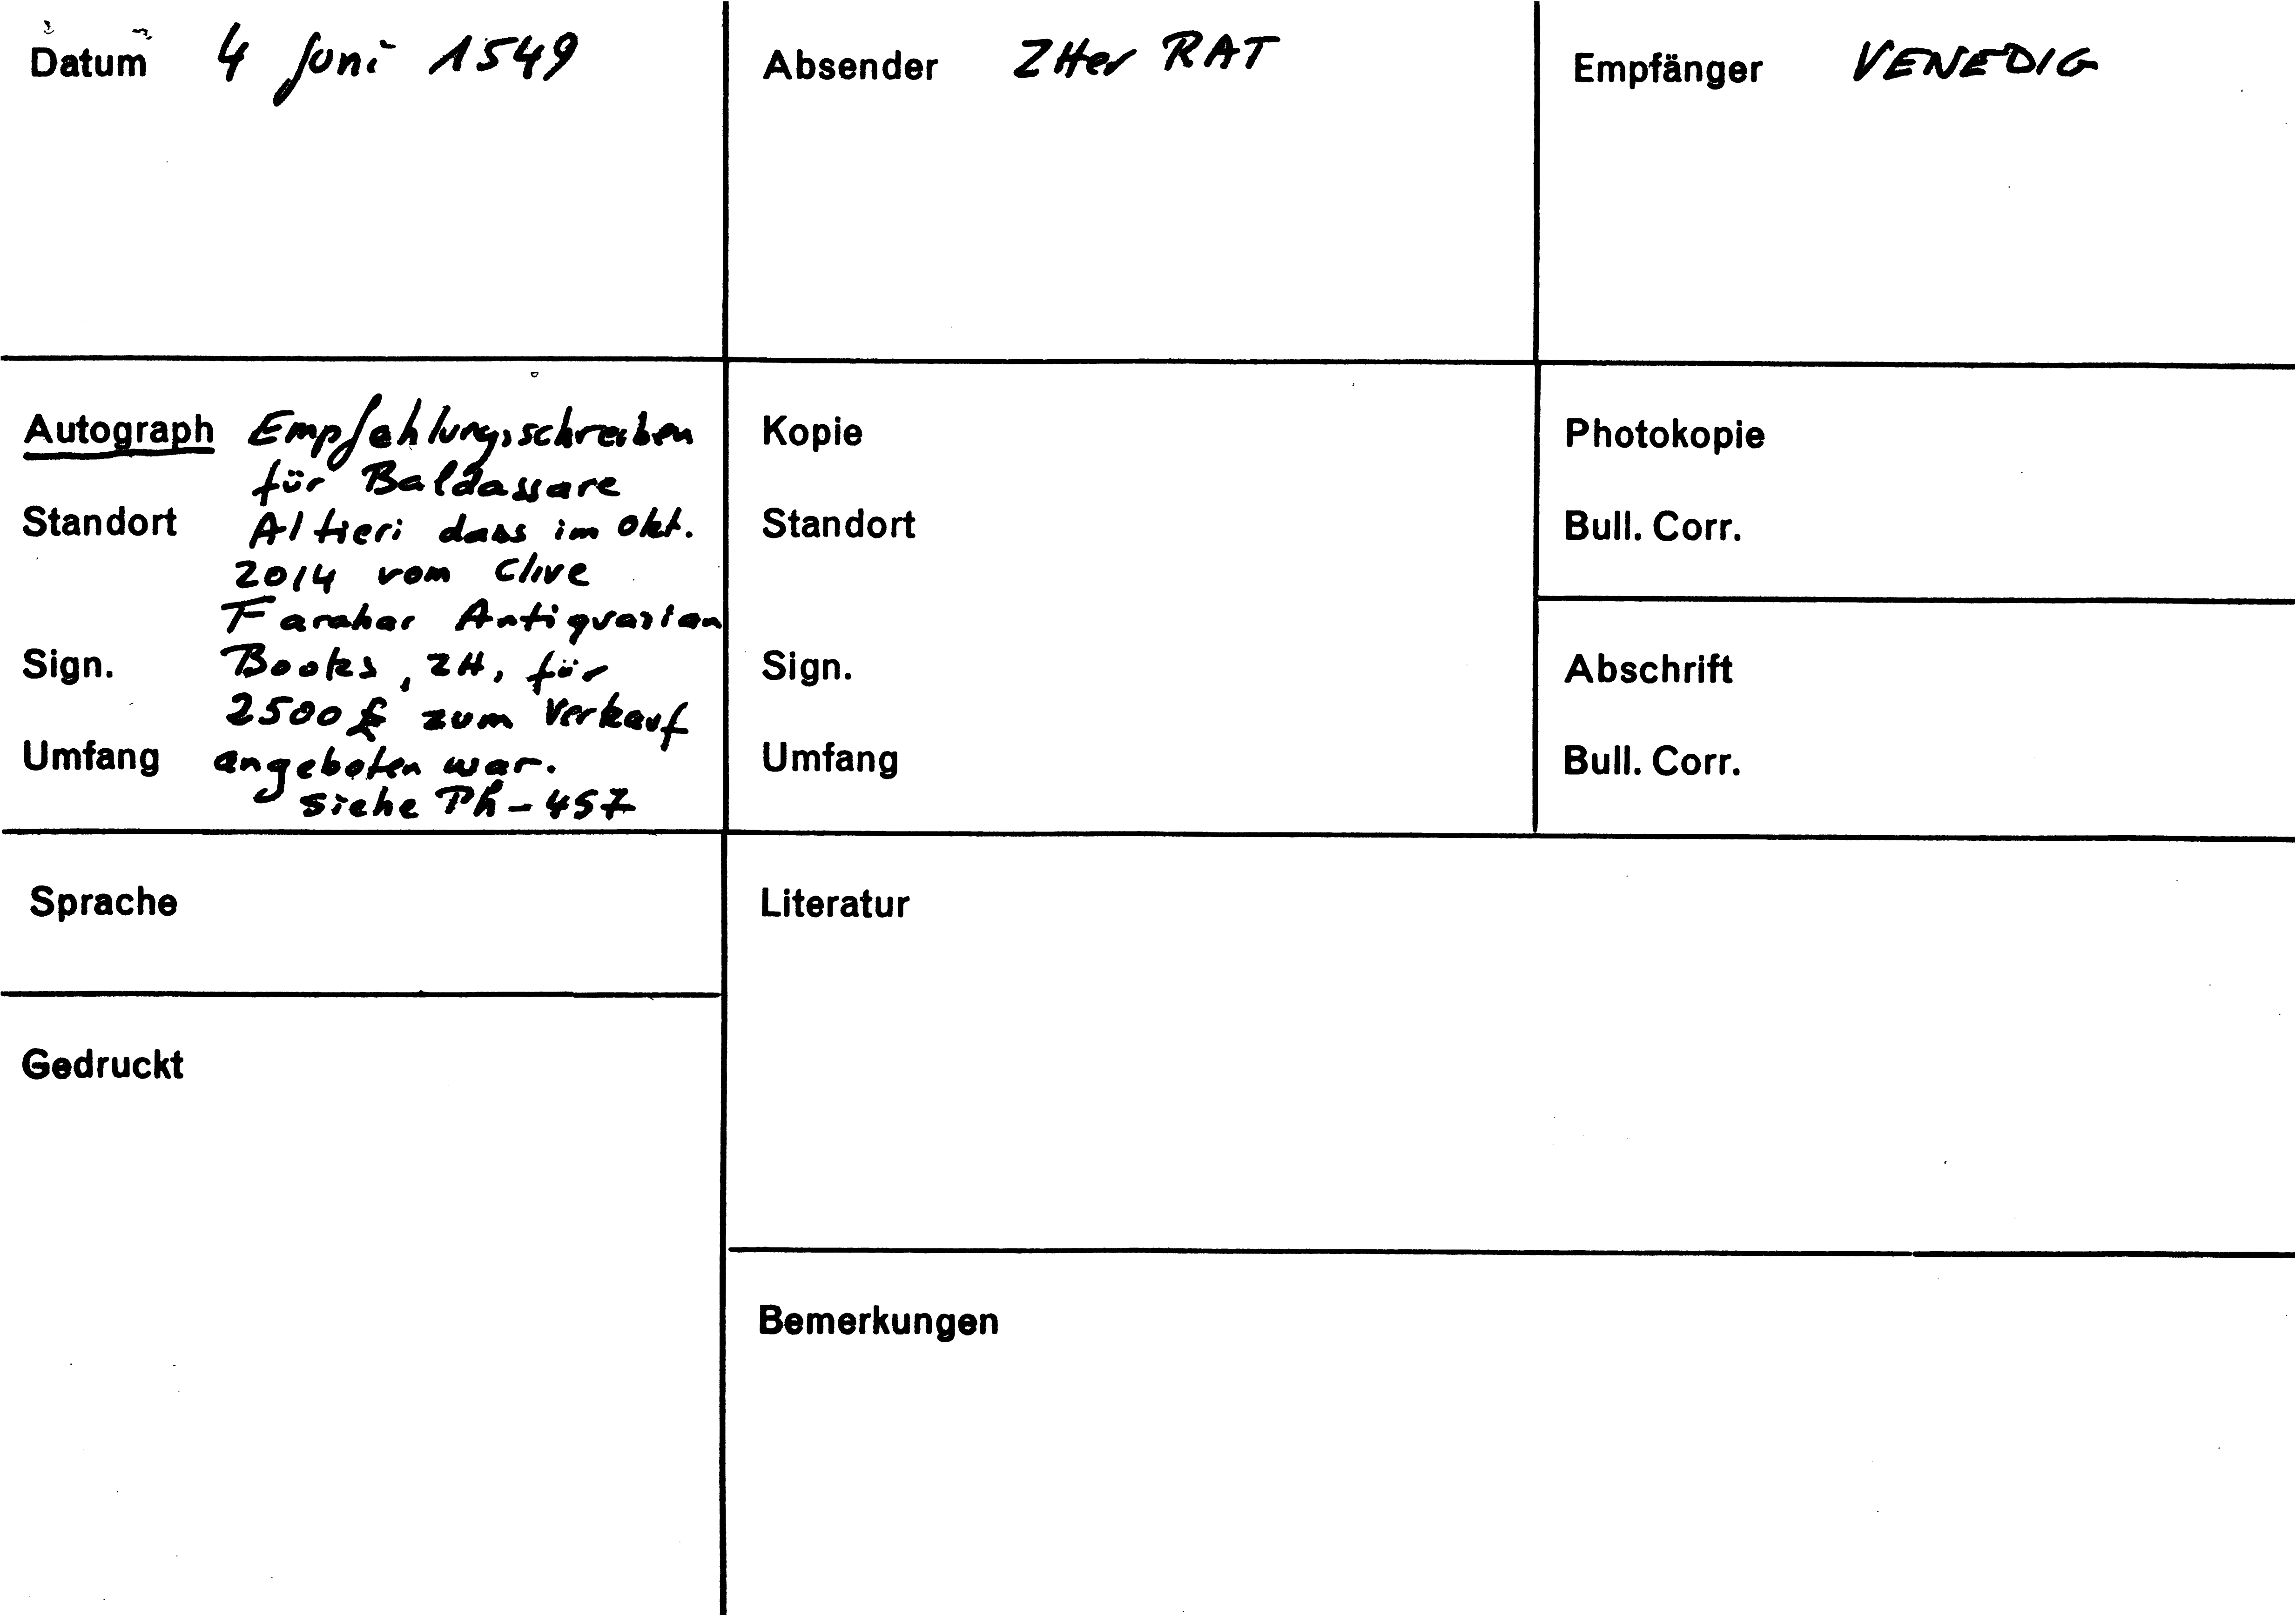 Datum 4 Juni 1549
Absender ZHer RAT
Empfänger VENEDIG
Autograph Empfehlungsschreiben
für Baldassare
Standort Altieri dass im Okt.
2014 vom Clive
Farahar Antiquarian
Sign. Books, ZH, für
2500 £ zum Verkauf
Umfang angeboten war.
siehe Ph-457
Kopie
Standort
Sign.
Umfang
Photokopie
Bull. Corr.
Abschrift
Bull. Corr.
Sprache
Gedruckt
Literatur
Bemerkungen